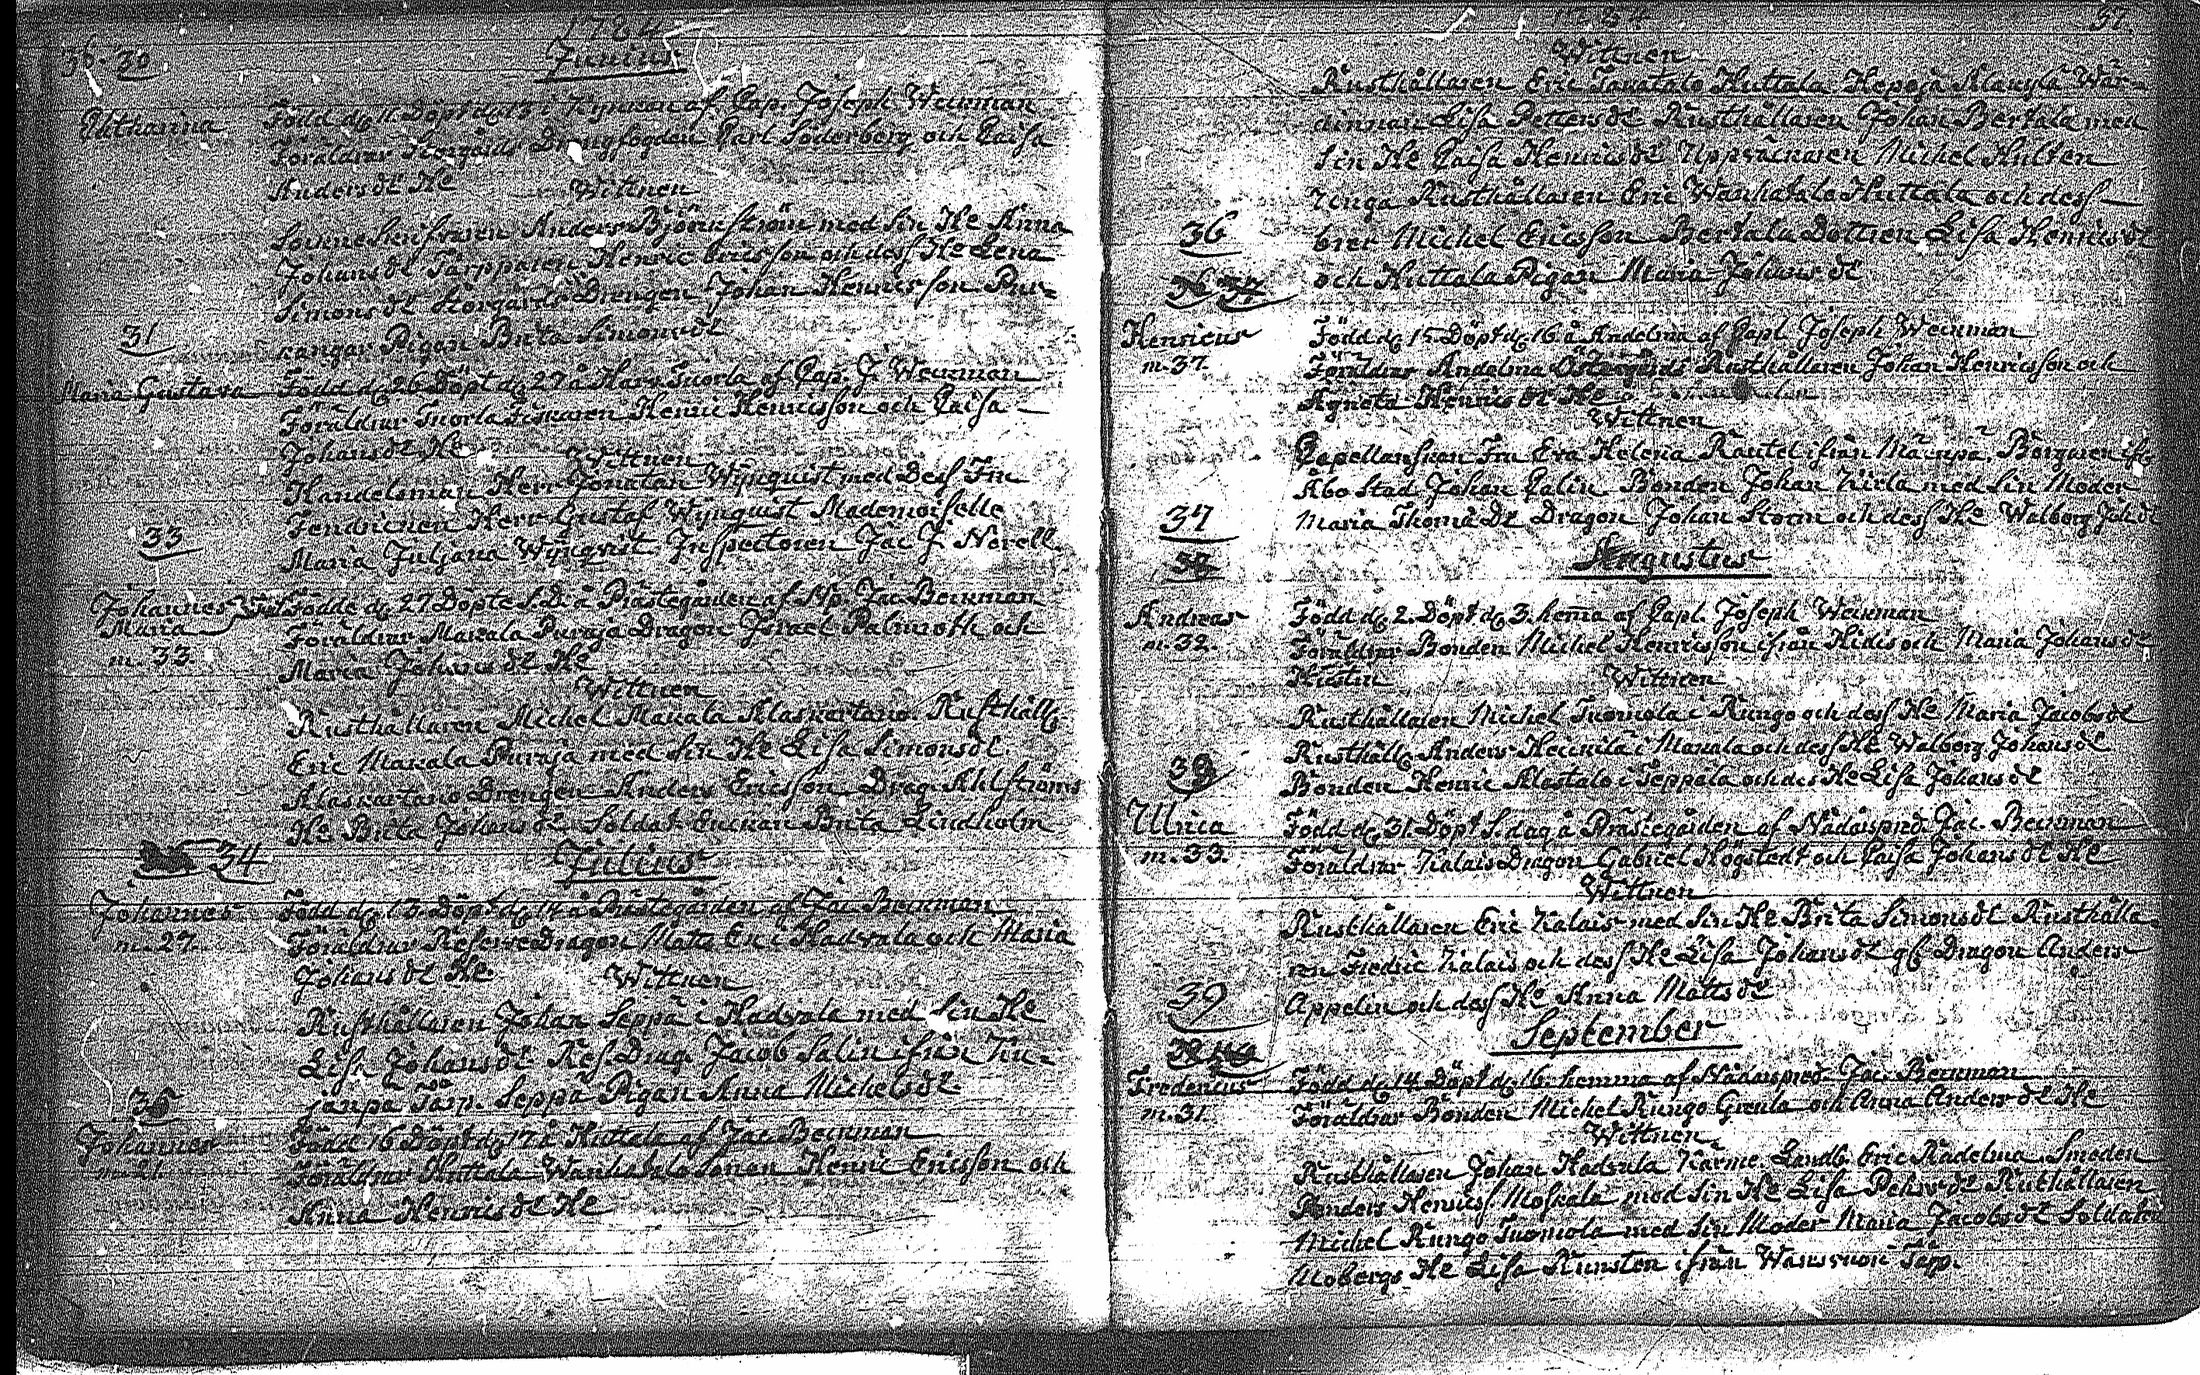 1784
36. 30
Junius
Född d. 11 Döpt d. 13 i af Cap. Joseph Weckman
Föräldrar Storgårds Drengfogden Carl Söderberg och Caisa
Andersdr He
Wittnen
Anders Björnström med Sin He Anna
Johansdr Henric Ericsson och dess He Lena
Simonsdr Storgårds Drengen Johan Henricsson Pur-
Pigan Brita Simonsdr
31
Maria Gustava Född d. 26 Döpt d. 27 å Tuorla af Cap. J. Weckman
Föräldrar Tuorla Fiskaren Henric Henricsson och Caisa
Johansdr He
Wittnen
Handelsman Herr Jonatan Wijnquist med Dess Fru
Fendricken Herr Gustaf Wijnquist Mademoiselle
Maria Juljana Wijnqvist Inspectoren Jac J. Norell
33
Johannes
Maria
m. 33.
Födde d. 27 Döpte S.D. å Prästegården af Np. Jac Beckman
Föräldrar Makala Puraja Dragon Israel Palmroth och
Maria Johansdr He
Wittnen
Rusthållaren Michel Makala Alaskartano Rusthåll.
Eric Makala Puraja med Sin He Lisa Simonsdr
Alaskartano Drengen Anders Ericsson Drag. Ahlströms
He Brita Johansdr Soldat Enckan Brita Lindholm
34
Julius
Johannes
m. 27.
Född d. 13 Döpt d. 14 å Prästegården af Jac Beckman
Föräldrar Reserve Dragon Matts Eric Hadvala och Maria
Johansdr He
Wittnen
Rusthållaren Johan Seppä i Hadvala med Sin He
Lisa Johansdr Res. Drag Jacob Salin ifrån
Seppä Pigan Anna Michelsdr
35
Johannes
m. 21.
Född 16 Döpt d. 17 å Huttala af Jac Beckman
Föräldrar Huttala Wanhatalo Sonen Henric Ericsson och
Anna Henricsdr He
37.
Wittnen
Rusthållaren Eric Huttala Klaukka Wär-
dinnan Lisa Pettersdr Rusthållaren Johan Bertala med
Sin He Caisa Henricsdr Michel Hulten
Rusthållaren Eric Wanhatalo Huttala och dess
bror Michel Ericsson Bertala Dottren Lisa Henricsdr
och Huttala Pigan Maria Johansdr
36
Henricus
m. 37.
Född d. 15 Döpt d. 16 å Andelma af Capl. Joseph Weckman
Föräldrar Andelma Östergårds Rusthållaren Johan Henricsson och
Agneta Henricsdr He
Wittnen
Capellanskan Fru Eva Helena Rautel ifrån Borgaren ifr
Åbo Stad Johan Calin Bonden Johan med Sin Moder
Maria Thomædr Dragon Johan Storm och dess He Walborg Joh.dr
37
Augustus
Andreas
m. 32.
Född d. 2. Döpt d. 3. hema af Capl. Joseph Weckman
Föräldrar Bonden Michel Henricsson ifrån Hidis och Maria Johansdr
Hustru
Wittnen
Rusthållaren Michel Tuomola i Rungo och dess He Maria Jacobsdr
Rusthåll. Anders Heickilä i Makala och dess He Walborg Johansdr
Bonden Henric Alastalo i Seppala och dess He Lisa Johansdr
38
Ulrica
m. 33.
Född d. 31. Döpt S. dag å Prästegården af Jac. Beckman
Föräldrar Kalais Dragon Gabriel Högstedt och Caisa Johansdr He
Wittnen
Rusthållaren Eric Kalais med Sin He Brita Simonsdr Rusthålla-
ren Fredric Kalais och dess He Lisa Johansdr gl. Dragon Anders
Appelin och dess He Anna Mattsdr
39
September
Fredericus
m. 31.
Född d. 14 Döpt d. 16. hemma af Jac. Beckman
Föräldrar Bonden Michel Rungo Greula och Anna Andersdr He
Wittnen
Rusthållaren Johan Hadvala Kärme. Landb. Eric Radelma Smeden
Anders Henricss. Moskala med Sin He Lisa Rusthållaren
Michel Rungo Tuomola med Sin Moder Maria Jacobsdr Soldaten
Mobergs He Lisa Runsten ifrån